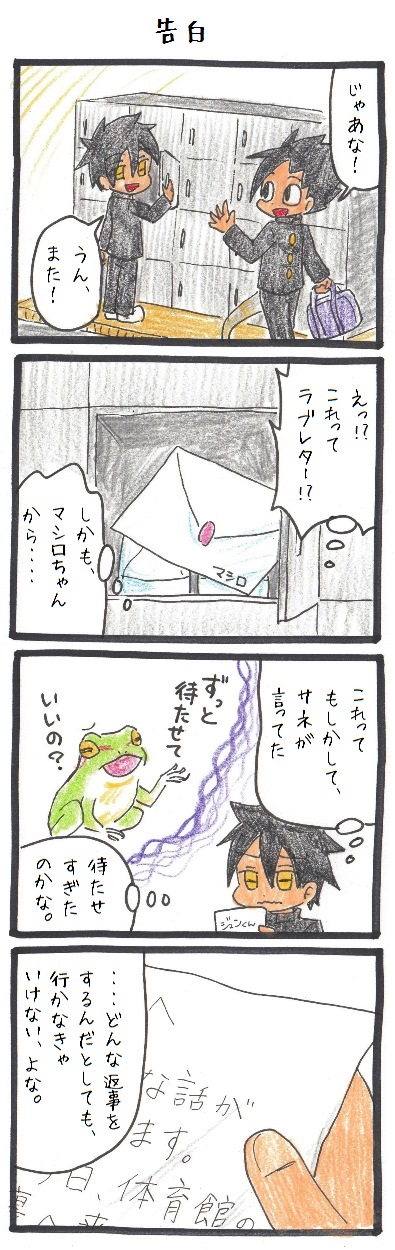 告白
じゃあな!
うん、
また!
えっ!?
これって
ラブレター!?
しかも、
マシロちゃん
から・・・・
マシロ
これって
もしかして、
サネが
言ってた
ずっと
待たせて
いいの?
待たせ
すぎた
のかな。
ジュンくん
・・・・どんな返事を
するんだとしても、
行かなきゃ
いけない、よな。
へ
な話が
ます。
日、体育館の